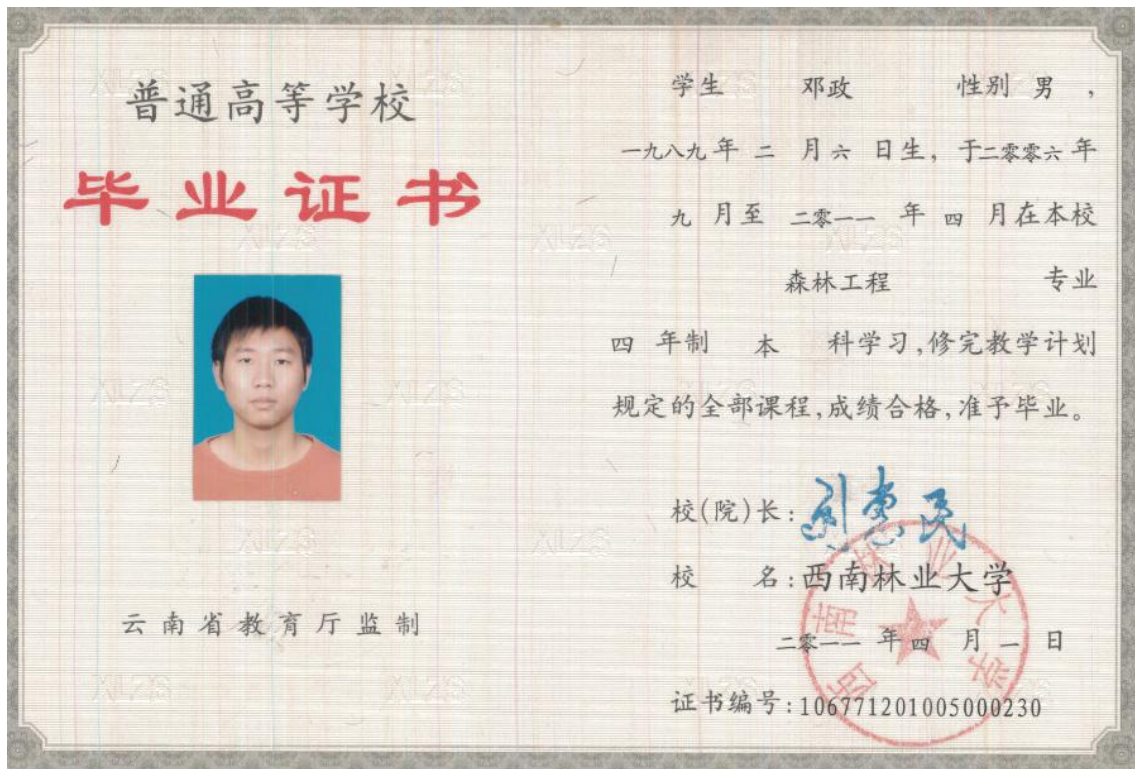 普通高等学校
毕业证书
云南省教育厅监制
学生 邓政 性别 男 ,
一九八九年 二 月六 日生, 于二零零六年
九 月至 二零一一 年 四 月在本校
森林工程 专业
四 年制 本 科学习,修完教学计划
规定的全部课程,成绩合格,准予毕业。
校(院)长: 刘惠民
校 名:西南林业大学
二零一一 年四 月 一 日
证书编号:106771201005000230
西南林业大学
XLZS